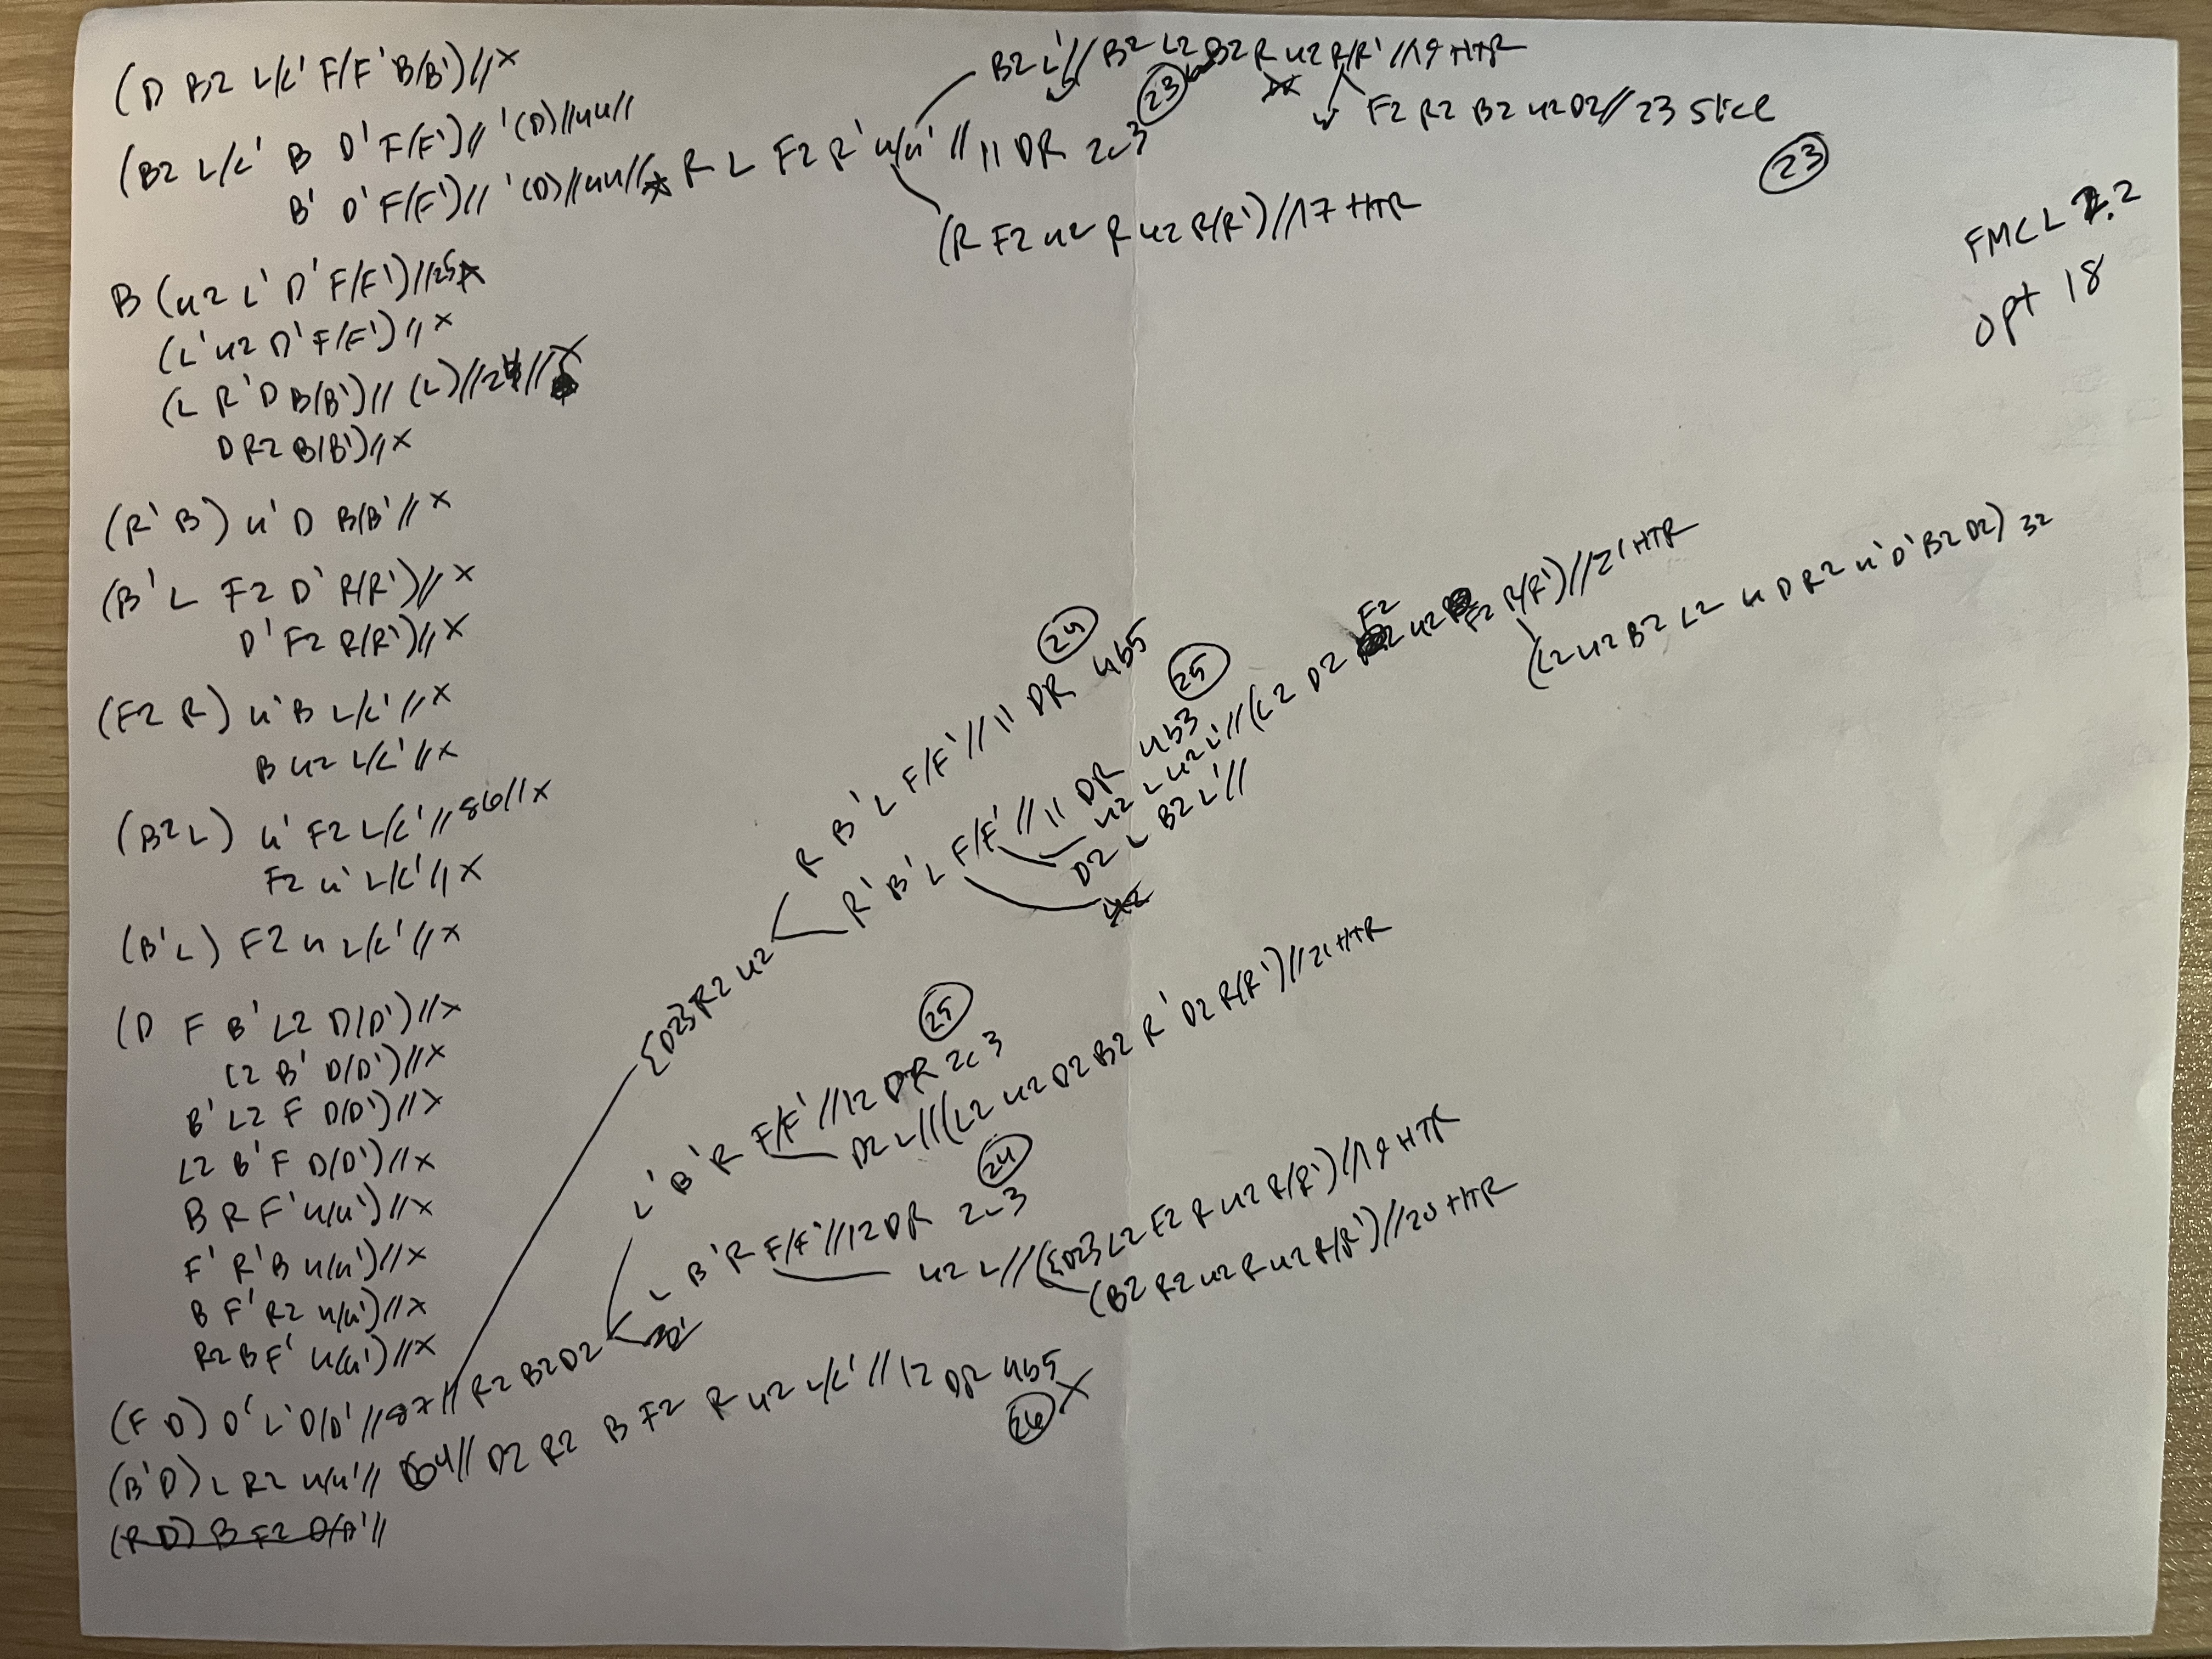 (D B2 L/L' F/F' B/B')//x
(B2 L/L' B D' F(F')//'(D)//44//
B' D' F(F')//'(D)//44// R L F2 R' u/u' // 11 DR 2c3 (23)
B2 L'//B2 L2 B2 R u2 R/R' //19 HTR
F2 R2 B2 u2 D2// 23 slice
(23)
(R F2 u2 R u2 R(R')//17 HTR
FMCL 2.2
opt 18
B (u2 L' D' F/F')//25
(L' u2 D' F/F')//x
(L R' D B(B')// (L)//24//x
D R2 B(B')//x
(R' B') u' D B/B' // x
(B' L F2 D' R(R')//x
D' F2 R(R')//x
(F2 R) u' B L/L' //x
B u2 L/L' //x
(B2 L) u' F2 L/L' //86//x
F2 u' L/L' //x
(B' L) F2 u L/L' //x
(D F B' L2 D(D')//x
L2 B' D(D')//x
B' L2 F D(D')//x
L2 B' F D(D')//x
B R F' u(u')//x
F' R' B u(u')//x
B F' R2 u(u')//x
R2 B F' u(u')//x
(F D) D' L' D/D' //87// R2 B2 D2
{D2} R2 u2
R B' L F/F' // 11 DR 4b5 (24)
R' B' L F/F' // 11 DR 4b3 (25)
u2 L u2 L'//(L2 D2 F2 u2 F2 R/R')//21 HTR
(L2 u2 B2 L2 u D R2 u' D' B2 D2) 32
D2 L B2 L'//
L' B' R F/F' //12 DR 2c3 (25)
D2 L//(L2 u2 D2 B2 R' D2 R(R')//21 HTR
L B' R F/F' //12 DR 2c3 (24)
u2 L//({D2} L2 F2 R u2 R(R')//19 HTR
(B2 R2 u2 R u2 R(R')//20 HTR
(B' D) L R2 u/u' // 64// D2 R2 B F2 R u2 L/L' //12 DR 4b5
(26) X
(R D) B F2 D/D' //